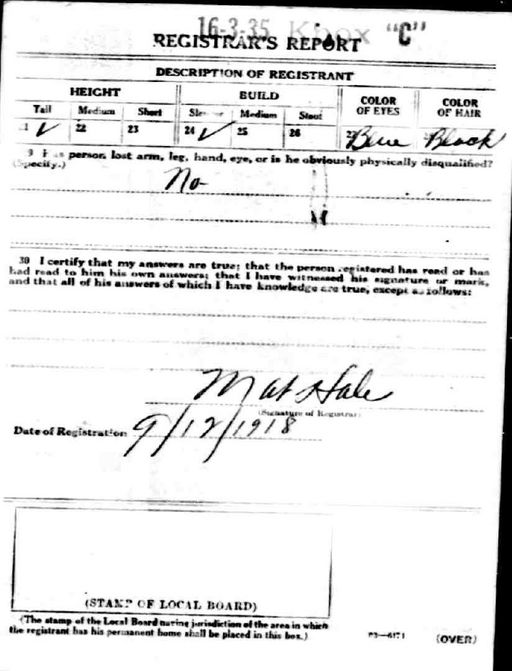 16-3-35 Knox "C"
REGISTRAR'S REPORT
DESCRIPTION OF REGISTRANT
HEIGHT BUILD COLOR OF EYES COLOR OF HAIR
Tall Medium Short Slender Medium Stout
21 ✓ 22 23 24 ✓ 25 26 27 Blue 28 Black
29 Has person lost arm, leg, hand, eye, or is he obviously physically disqualified?
(Specify.)
No
30 I certify that my answers are true; that the person registered has read or has
had read to him his own answers; that I have witnessed his signature or mark,
and that all of his answers of which I have knowledge are true, except as follows:
Mat Hale
(Signature of Registrar)
Date of Registration 9/12/1918
(STAMP OF LOCAL BOARD)
(The stamp of the Local Board having jurisdiction of the area in which
the registrant has his permanent home shall be placed in this box.)
03-6171 (OVER)